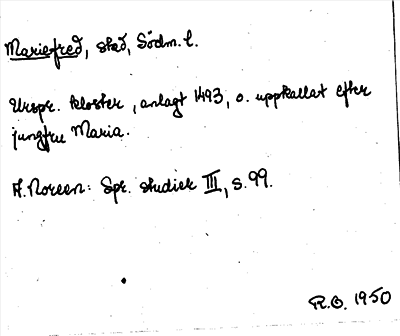 Mariefred, stad, Södm. l.
Urspr. kloster, anlagt 1493, o. uppkallat efter
jungfru Maria.
A. Noreen: Spr. studier III, s. 99.
R.O. 1950